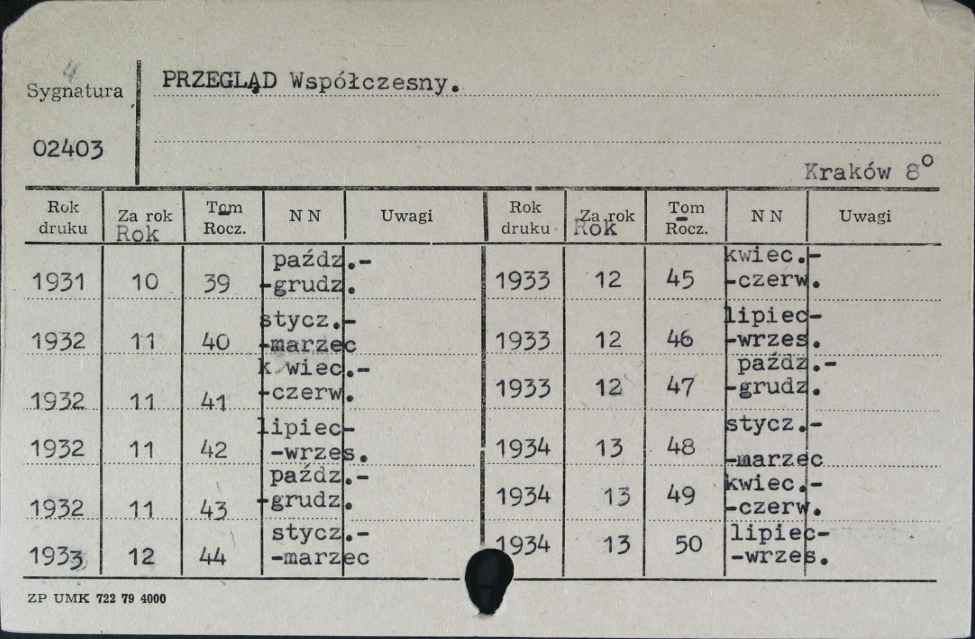 4
Sygnatura
PRZEGLĄD Współczesny.
02403
Kraków 8°
Rok druku Za rok Rok Tom Rocz. N N Uwagi Rok druku Za rok Rok Tom Rocz. N N Uwagi
1931 10 39 paźdz.-
-grudz.
1933 12 45 kwiec.-
-czerw.
1932 11 40 stycz.-
-marzec
1933 12 46 lipiec-
-wrzes.
1932 11 41 k wiec.-
-czerw.
1933 12 47 paźdz.-
-grudz.
1932 11 42 lipiec-
-wrzes.
1934 13 48 stycz.-
-marzec
1932 11 43 paźdz.-
-grudz.
1934 13 49 kwiec.-
-czerw.
1933 12 44 stycz.-
-marzec
1934 13 50 lipiec-
-wrzes.
ZP UMK 722 79 4000